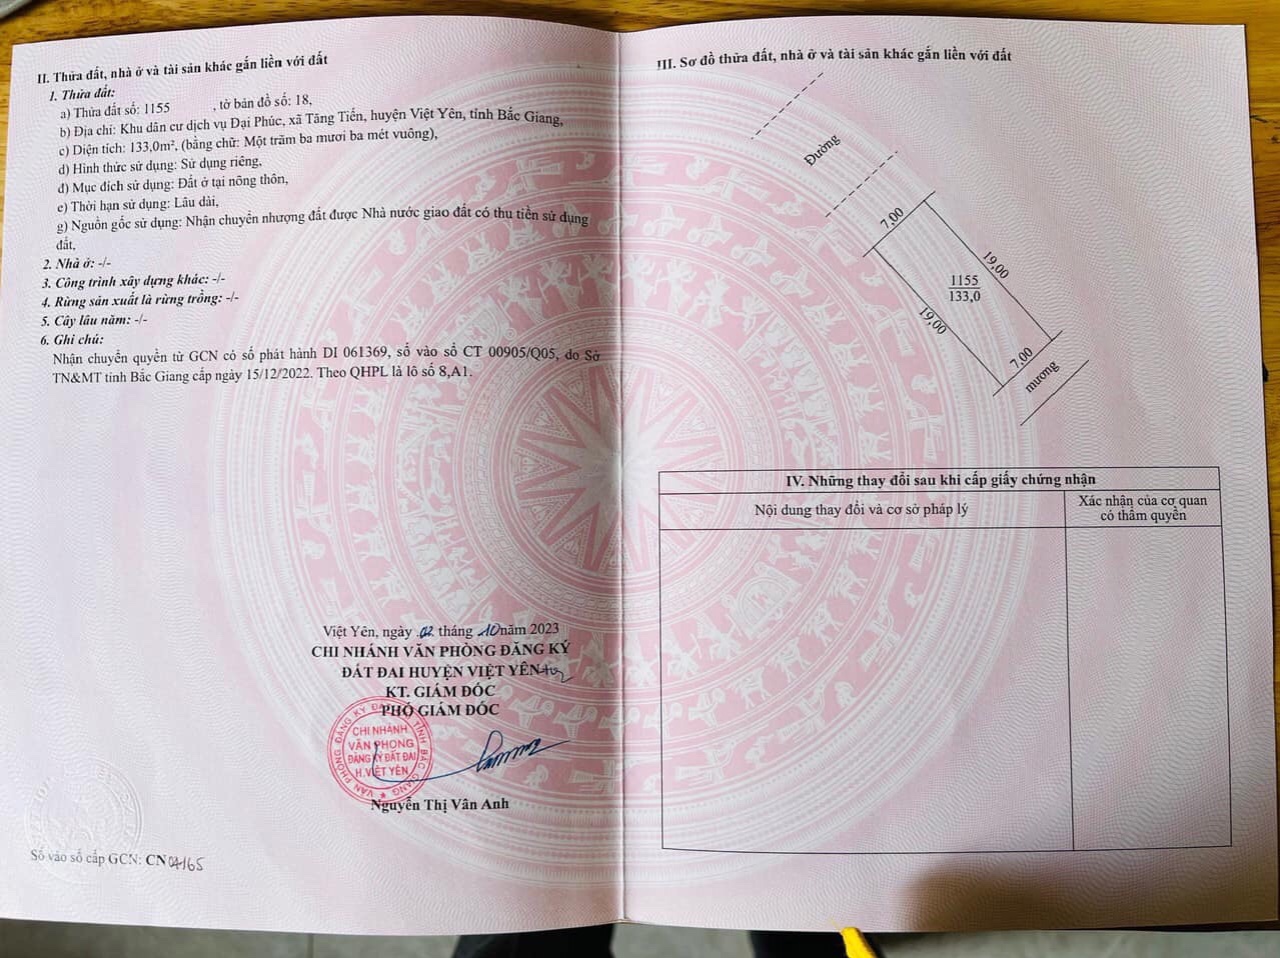 II. Thửa đất, nhà ở và tài sản khác gắn liền với đất
1. Thửa đất:
a) Thửa đất số: 1155 , tờ bản đồ số: 18,
b) Địa chỉ: Khu dân cư dịch vụ Đại Phúc, xã Tăng Tiến, huyện Việt Yên, tỉnh Bắc Giang,
c) Diện tích: 133,0m², (bằng chữ: Một trăm ba mươi ba mét vuông),
d) Hình thức sử dụng: Sử dụng riêng,
đ) Mục đích sử dụng: Đất ở tại nông thôn,
e) Thời hạn sử dụng: Lâu dài,
g) Nguồn gốc sử dụng: Nhận chuyển nhượng đất được Nhà nước giao đất có thu tiền sử dụng
đất,
2. Nhà ở: -/-
3. Công trình xây dựng khác: -/-
4. Rừng sản xuất là rừng trồng: -/-
5. Cây lâu năm: -/-
6. Ghi chú:
Nhận chuyển quyền từ GCN có số phát hành DI 061369, số vào sổ CT 00905/Q05, do Sở
TN&MT tỉnh Bắc Giang cấp ngày 15/12/2022. Theo QHPL là lô số 8,A1.
Việt Yên, ngày 02 tháng 10 năm 2023
CHI NHÁNH VĂN PHÒNG ĐĂNG KÝ
ĐẤT ĐAI HUYỆN VIỆT YÊN
KT. GIÁM ĐỐC
PHÓ GIÁM ĐỐC
VĂN PHÒNG ĐĂNG KÝ ĐẤT ĐAI TỈNH BẮC GIANG
CHI NHÁNH
VĂN PHÒNG
ĐĂNG KÝ ĐẤT ĐAI
H.VIỆT YÊN
Nguyễn Thị Vân Anh
Số vào sổ cấp GCN: CN 04165
III. Sơ đồ thửa đất, nhà ở và tài sản khác gắn liền với đất
Đường
7,00
19,00
1155
133,0
19,00
7,00
mương
IV. Những thay đổi sau khi cấp giấy chứng nhận
Nội dung thay đổi và cơ sở pháp lý
Xác nhận của cơ quan
có thẩm quyền